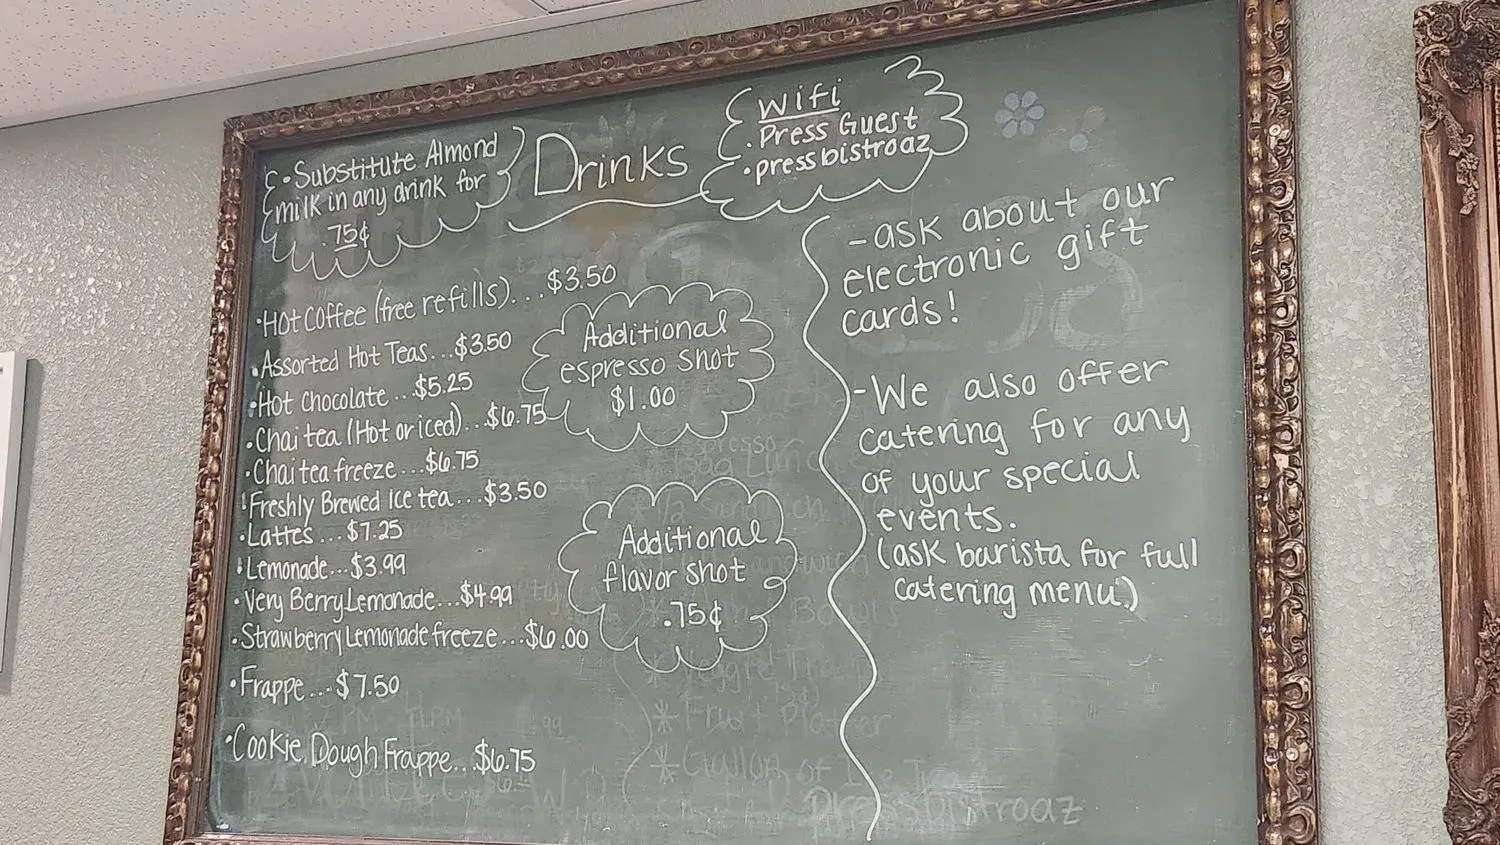 • Substitute Almond
milk in any drink for
.75¢
Drinks
Wifi
. Press Guest
• pressbistroaz
• Hot Coffee (free refills)...$3.50
• Assorted Hot Teas...$3.50
• Hot Chocolate...$5.25
• Chai tea (Hot or iced)...$6.75
• Chai tea freeze...$6.75
• Freshly Brewed Ice tea...$3.50
• Lattes...$7.25
• Lemonade...$3.99
• Very Berry Lemonade...$4.99
• Strawberry Lemonade freeze...$6.00
• Frappe...$7.50
• Cookie Dough Frappe...$6.75
Additional
espresso shot
$1.00
Additional
flavor shot
.75¢
-ask about our
electronic gift
cards!
-We also offer
catering for any
of your special
events.
(ask barista for full
catering menu.)
* Fruit Platter
* Gallon of Ice Tea
pressbistroaz